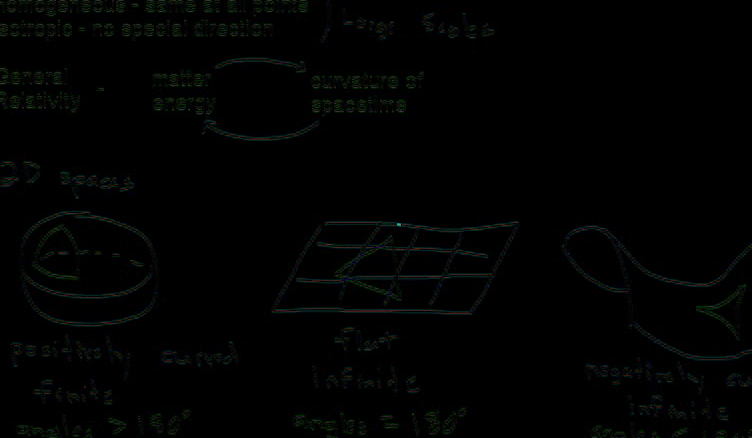 homogeneous - same at all points
isotropic - no special direction
Large Scales
General
Relativity -
matter
energy
curvature of
spacetime
2D spaces
positively curved
finite
angles > 180°
flat
infinite
angles = 180°
negatively
infinite